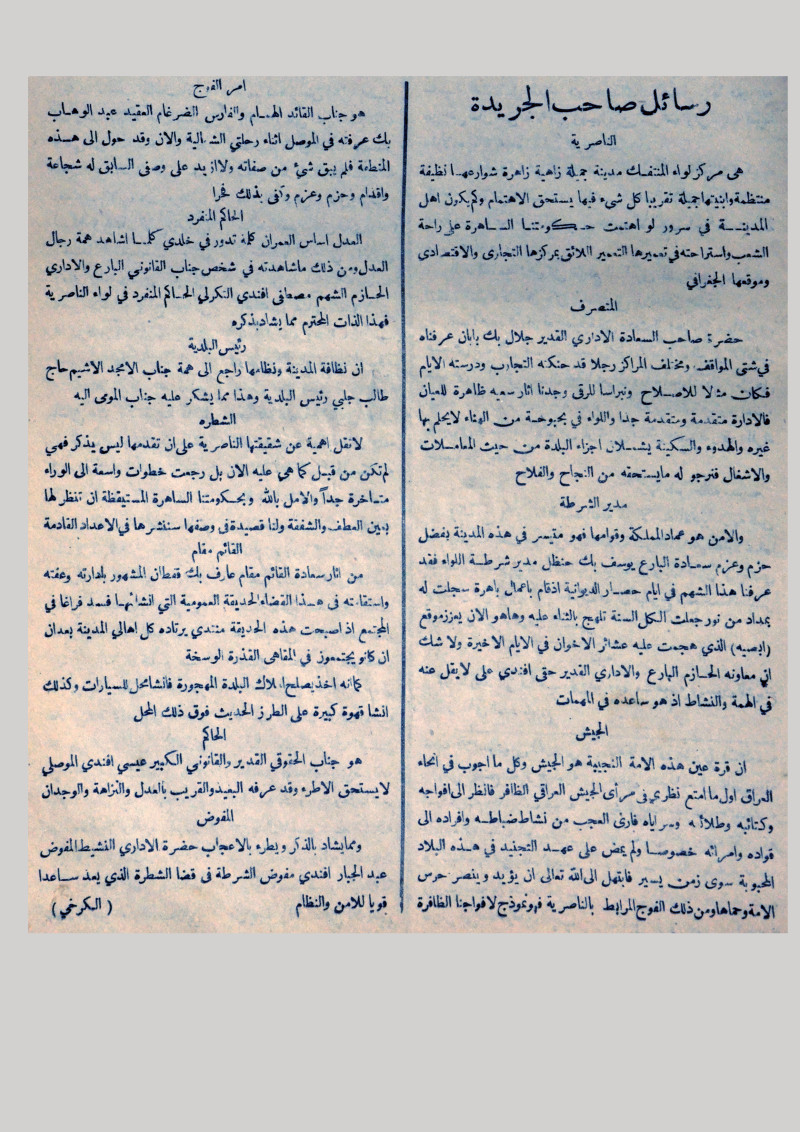 رسائل صاحب الجريدة
الناصرية
هى مركز لواء المنتفك مدينة جميلة زاهية زاهرة شوارعها نظيفة
منتظمة وابنيتها جميلة تقريبا كل شىء فيها يستحق الاهتمام وكم يكون اهل
المدينة في سرور لو اهتمت حكومتنا الساهرة على راحة
الشعب واستراحته في تعميرها التعمير اللائق بمركزها التجارى والاقتصادى
وموقعها الجغرافي
المتصرف
حضرة صاحب السعادة الادارى القدير جلال بك بابان عرفناه
فى شتى المواقف ومختلف المراكز رجلا قد حنكته التجارب ودرسته الايام
فكان مثالا للاصلاح ونبراسا للرقى وجدنا اثار سعيه ظاهرة للعيان
فالادارة متقدمة ومتقدمة جدا واللواء في بحبوحة من الهناء لايحلم بها
غيره والهدوء والسكينة يشملان اجزاء البلدة من حيث المعاملات
والاشغال فنرجو له مايستحقه من النجاح والفلاح
مدير الشرطة
والامن هو عماد المملكة وقوامها فهو متيسر في هذه المدينة بفضل
حزم وعزم سعادة البارع يوسف بك حنظل مدير شرطة اللواء فقد
عرفنا هذا الشهم في ايام حصار الديوانية اذ قام باعمال باهرة سجلت له
بمداد من نور جعلت الكل السنة تلهج بالثناء عليه وهاهو الان يعزز موقع
الذي هجمت عليه عشائر الاخوان في الايام الاخيرة ولا شك
ان معاونه الحازم البارع والادارى القدير حتى افندي على لايقل عنه
في الهمة والنشاط اذ هو ساعده في المهمات
الجيش
ان قرة عين هذه الامة النجيبة هو الجيش وكل ما اجوب في انحاء
العراق اول ما امتع نظري في مرأى الجيش العراقي الظافر فانظر الى افواجه
وكتائبه وطلائعه وسراياه فارى العجب من نشاط ضباطه وافراده الى
قواده وامرائه خصوصا ولم يمض على عهد التجنيد في هذه البلاد
المحبوبة سوى زمن يسير فابتهل الى الله تعالى ان يؤيد وينصر حرس
الامة وحماها ومن ذلك الفوج المرابط بالناصرية فهو نموذج لافواجنا الظافرة
امر الفوج
هو جناب القائد الهمام والفارس الضرغام العقيد عبد الوهاب
بك عرفته في الموصل اثناء رحلتي الشمالية والان وقد حول الى هذه
المنطقة فلم يبق شئ من صفاته ولاازيد على وصفى السابق له شجاعة
واقدام وحزم وعزم وكفى بذلك فخرا
الحاكم المنفرد
العدل اساس العمران كلمة تدور في خلدي كلما اشاهد همة رجال
العدل ومن ذلك ماشاهدته في شخص جناب القانوني البارع والاداري
الحازم الشهم مصطفى افندي التكرلى الحاكم المنفرد في لواء الناصرية
فهذا الذات المحترم مما يشاد بذكره
رئيس البلدية
ان نظافة المدينة ونظامها راجع الى همة جناب الامجد الاشيم حاج
طالب جلبي رئيس البلدية وهذا مما يشكر عليه جناب المومى اليه
الشطره
لاتقل اهمية عن شقيقتها الناصرية على ان تقدمها ليس يذكر فهي
لم تكن من قبل كما هي عليه الان بل رجعت خطوات واسعة الى الوراء
متأخرة جداً والامل بالله وبحكومتنا الساهرة المستيقظة ان تنظر لها
بعين العطف والشفقة ولنا قصيدة في وصفها سننشرها في الاعداد القادمة
القائم مقام
من اثار سعادة القائم مقام عارف بك قفطان المشهور بادارته وعفته
واستقامته في هذا القضاء الحديقة العمومية التي انشائها فسد فراغا في
المجتمع اذ اصبحت هذه الحديقة منتدى يرتاده كل اهالي المدينة بعدان
ان كانو يجتمعوز في المقاهى القذرة الوسخة
كما انه اخذ يصلح املاك البلدة المهجورة فانشا محل للسيارات وكذلك
انشا قهوة كبيرة على الطرز الحديث فوق ذلك المحل
الحاكم
هو جناب الحقوقي القدير والقانوني الكبير عيسى افندي الموصلي
لايستحق الاطره وقد عرفه البعيد والقريب بالعدل والنزاهة والوجدان
المفوض
ومما يشاد بالذكر ويطره بالاعجاب حضرة الاداري النشيط المفوض
عبد الجبار افندي مفوض الشرطة في قضا الشطرة الذي يعد ساعدا
قويا للامن والنظام ( الكرخي )